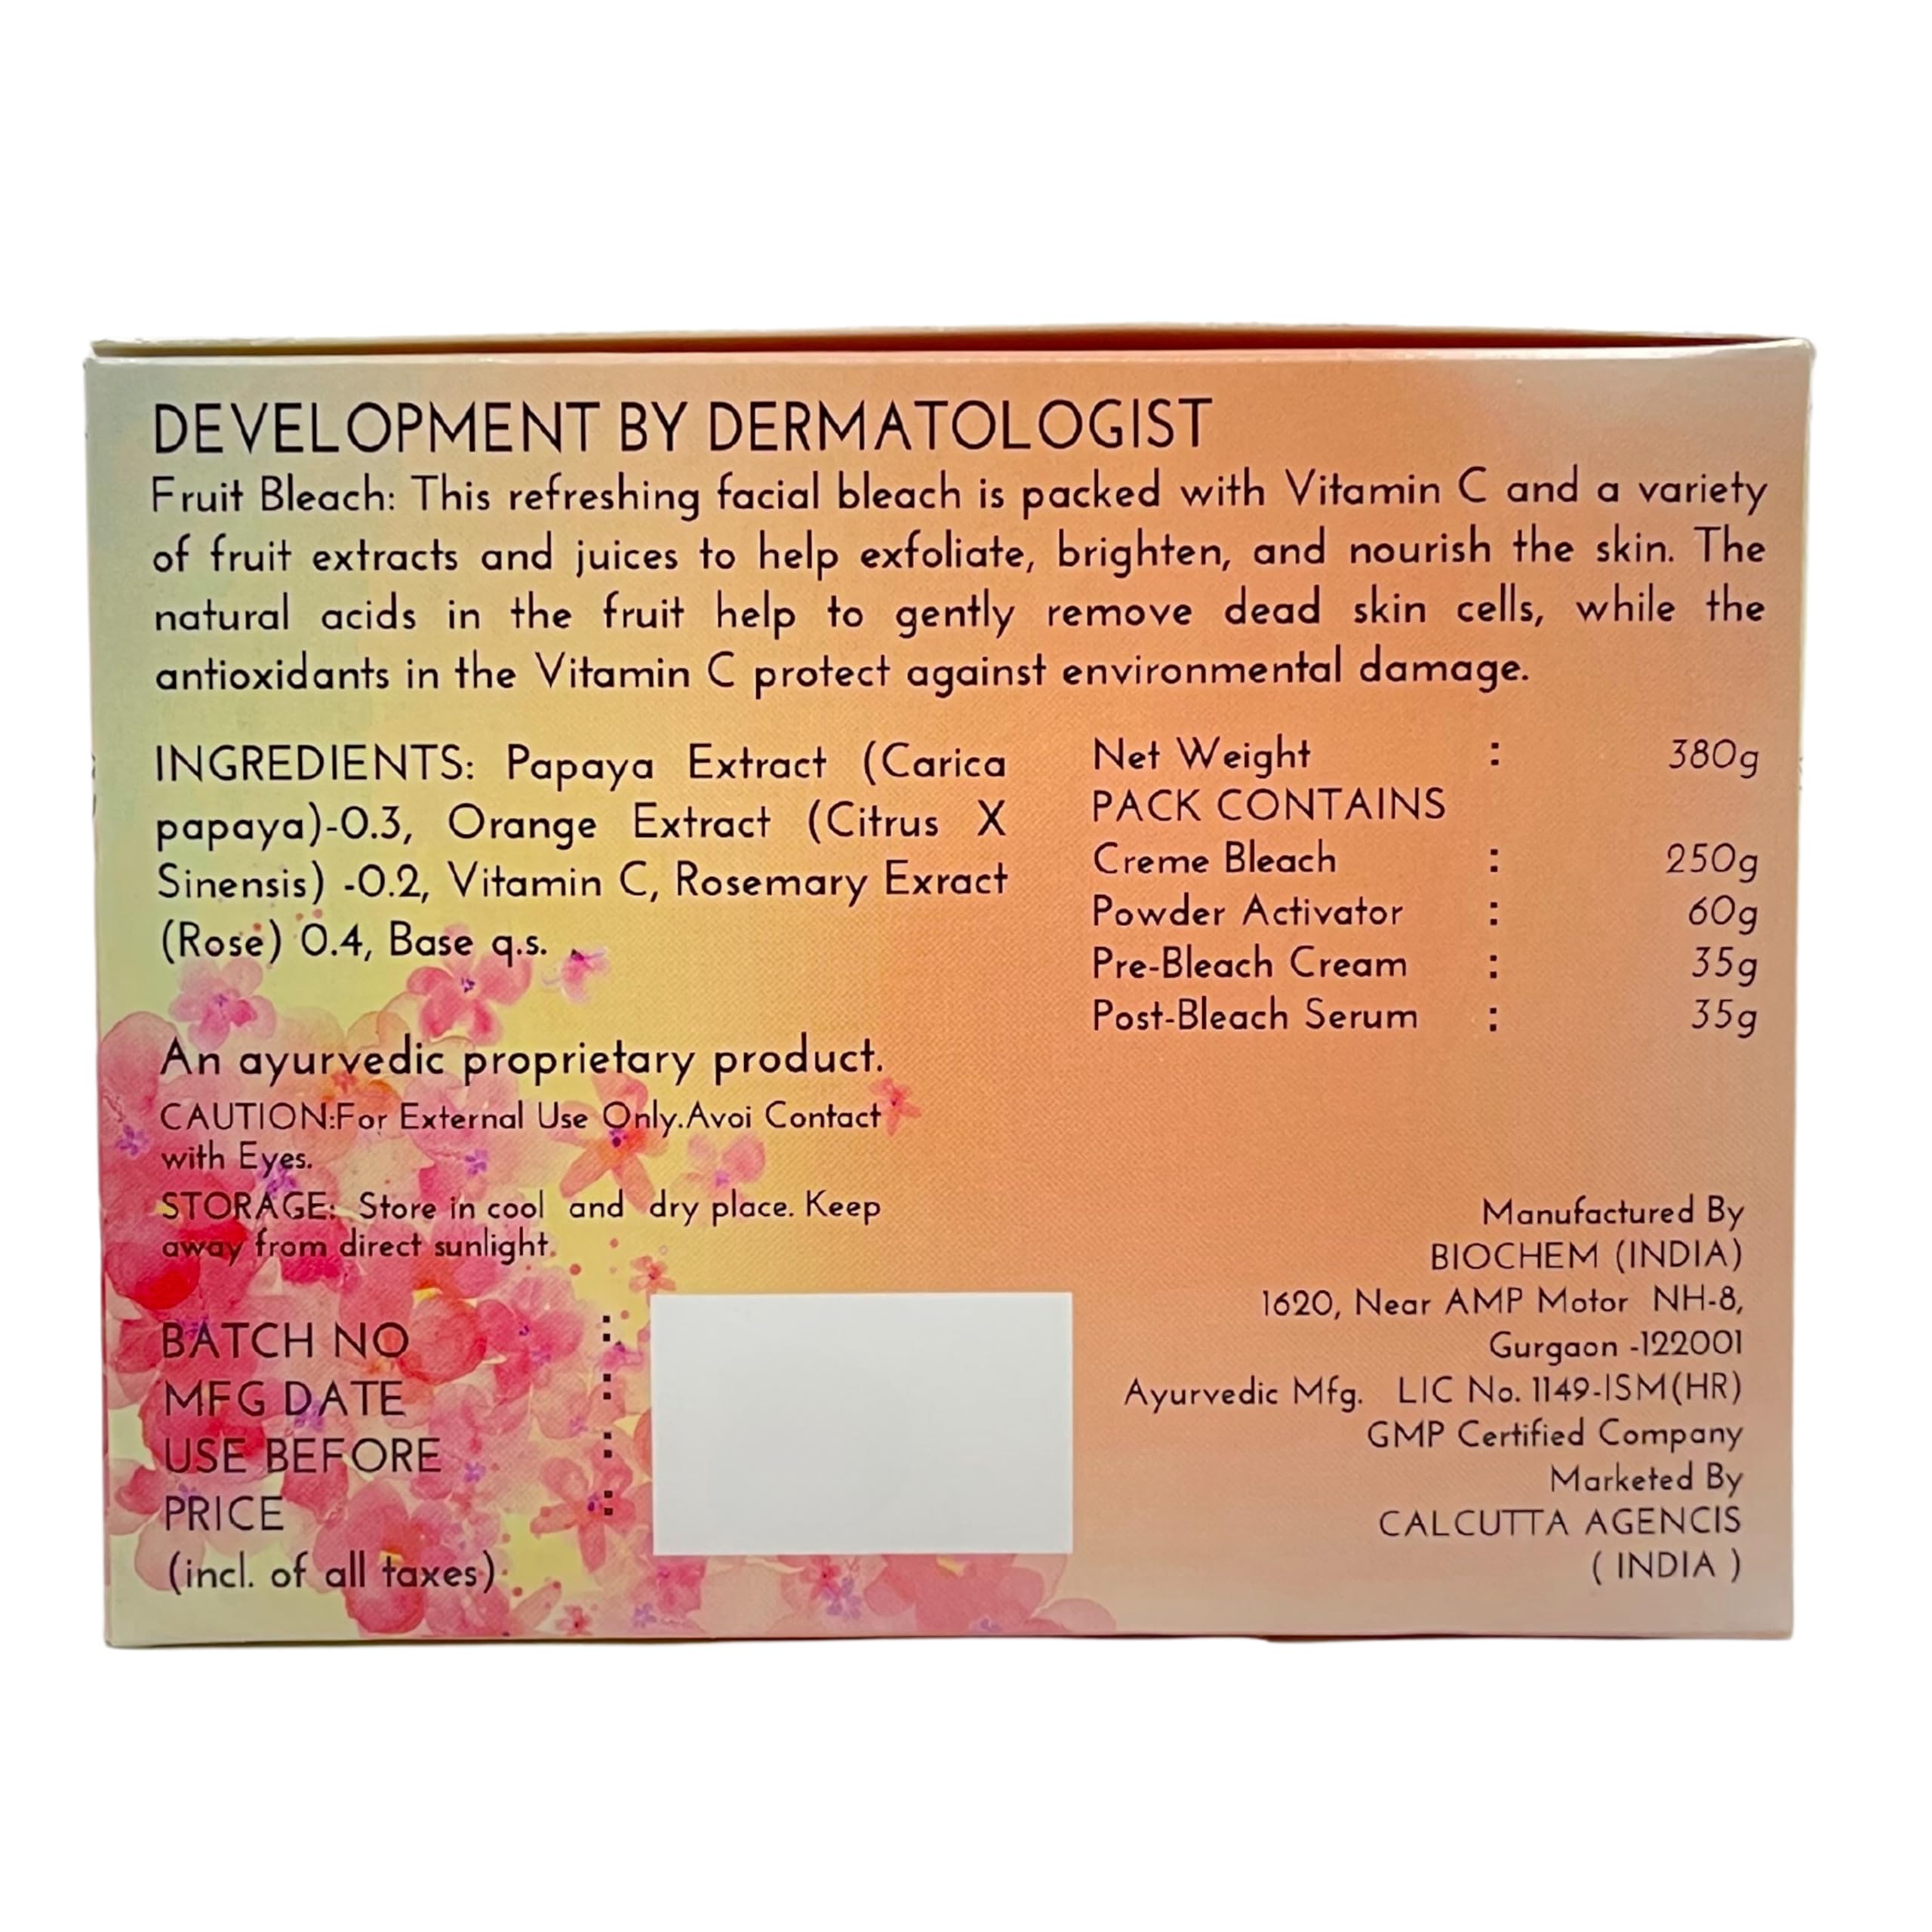 DEVELOPMENT BY DERMATOLOGIST
Fruit Bleach: This refreshing facial bleach is packed with Vitamin C and a variety
of fruit extracts and juices to help exfoliate, brighten, and nourish the skin. The
natural acids in the fruit help to gently remove dead skin cells, while the
antioxidants in the Vitamin C protect against environmental damage.
INGREDIENTS: Papaya Extract (Carica
papaya)-0.3, Orange Extract (Citrus X
Sinensis) -0.2, Vitamin C, Rosemary Exract
(Rose) 0.4, Base q.s.
An ayurvedic proprietary product.
CAUTION:For External Use Only.Avoi Contact
with Eyes.
STORAGE: Store in cool and dry place. Keep
away from direct sunlight.
BATCH NO :
MFG DATE :
USE BEFORE :
PRICE :
(incl. of all taxes)
Net Weight : 380g
PACK CONTAINS
Creme Bleach : 250g
Powder Activator : 60g
Pre-Bleach Cream : 35g
Post-Bleach Serum : 35g
Manufactured By
BIOCHEM (INDIA)
1620, Near AMP Motor NH-8,
Gurgaon -122001
Ayurvedic Mfg. LIC No. 1149-ISM(HR)
GMP Certified Company
Marketed By
CALCUTTA AGENCIS
( INDIA )